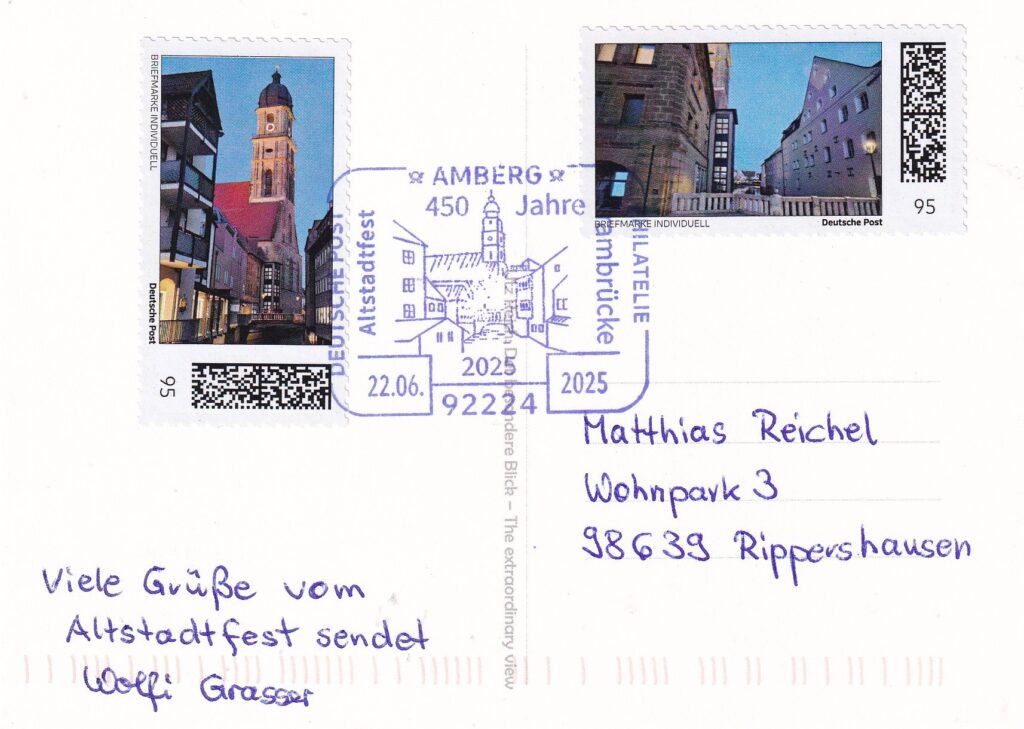 BRIEFMARKE INDIVIDUELL
Deutsche Post
95
BRIEFMARKE INDIVIDUELL
Deutsche Post
95
AMBERG
450 Jahre
DEUTSCHE POST
Altstadtfest
ambrücke
PHILATELIE
2025
22.06.
2025
92224
Der besondere Blick – The extraordinary view
Matthias Reichel
Wohnpark 3
98639 Rippershausen
Viele Grüße vom
Altstadtfest sendet
Wolfi Grasser